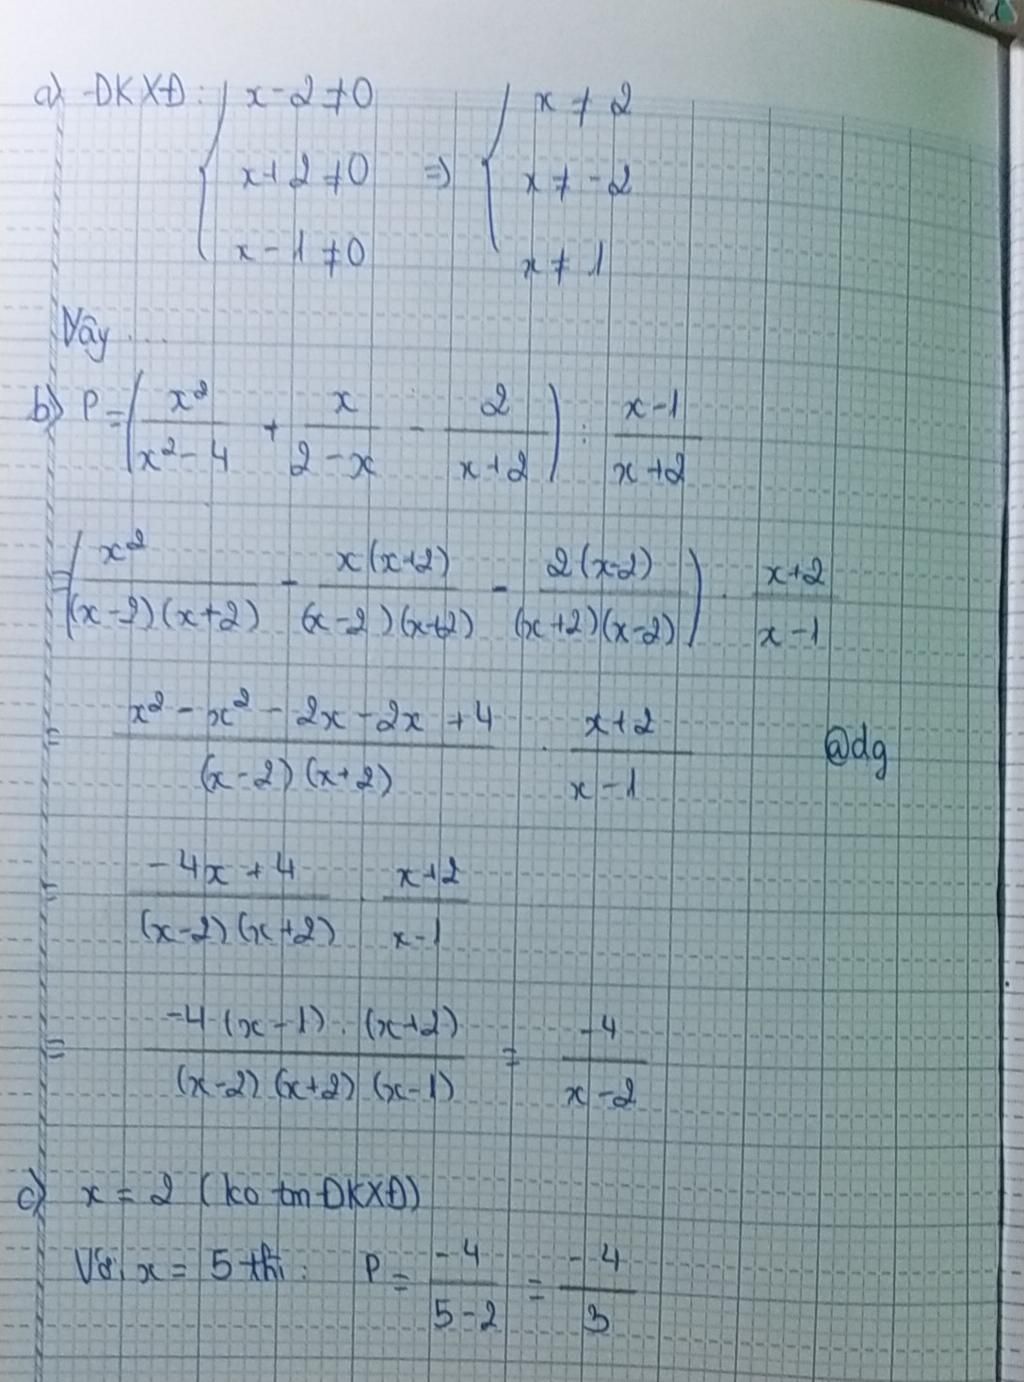 a) -ĐKXĐ: { x-2≠0 => { x≠2
x+2≠0 x≠-2
x-1≠0 x≠1
Vậy ...
b) P = (x²/(x²-4) + x/(2-x) - 2/(x+2)) : (x-1)/(x+2)
= (x²/((x-2)(x+2)) - x(x+2)/((x-2)(x+2)) - 2(x-2)/((x+2)(x-2))) . (x+2)/(x-1)
= (x²-x²-2x-2x+4)/((x-2)(x+2)) . (x+2)/(x-1) @dg
= (-4x+4)/((x-2)(x+2)) . (x+2)/(x-1)
= (-4(x-1).(x+2))/((x-2)(x+2)(x-1)) = -4/(x-2)
c) x = 2 (ko tm ĐKXĐ)
Với x = 5 thì: P = -4/(5-2) = -4/3